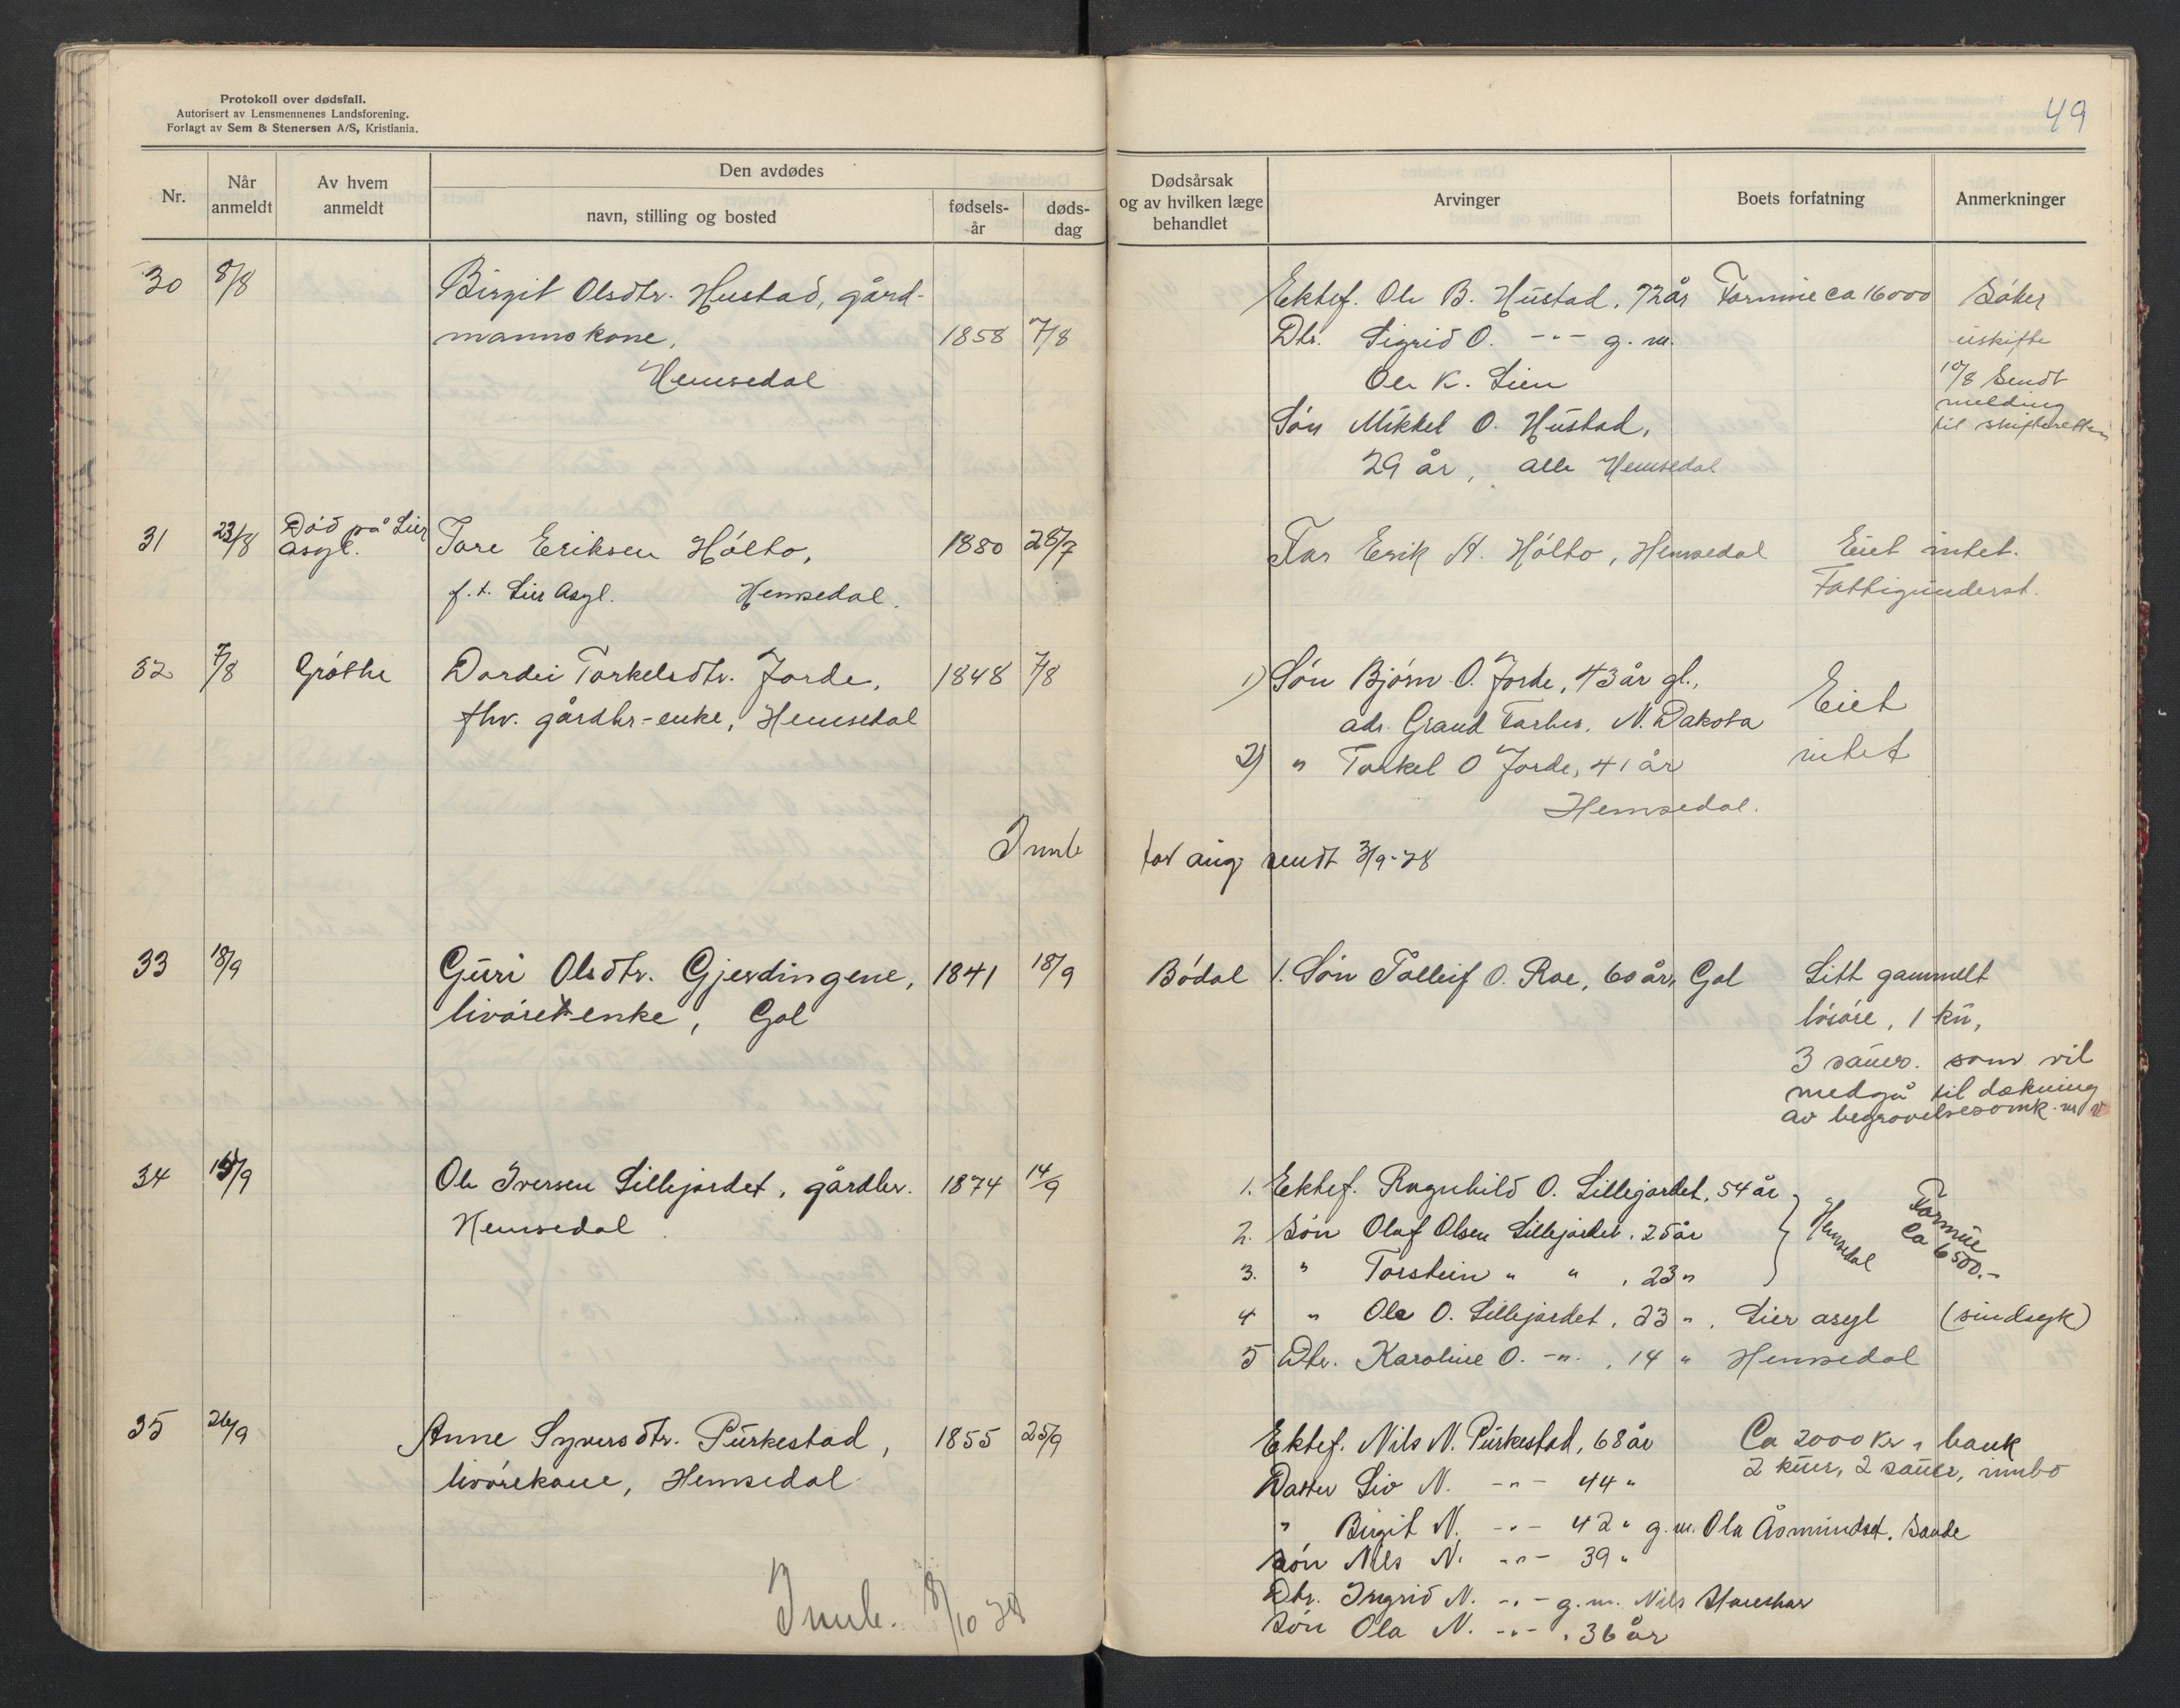 Protokoll over dødsfall.
Autorisert av Lensmennenes Landsforening.
Forlagt av Sem & Stenersen A/S, Kristiania.
49
Nr.
Når anmeldt
Av hvem anmeldt
Den avdødes
navn, stilling og bosted
fødsels-år
døds-dag
Dødsårsak og av hvilken læge behandlet
Arvinger
Boets forfatning
Anmerkninger
30 8/8 Birgit Olsdtr. Hustad, gård-
mannskone, 1858 7/8
Hemsedal
Ektef. Ole B. Hustad, 72 år Formue ca 16000 Söker
Dtr. Sigrid O. -"- g. m. uskifte
Ole K. Lien 10/8 Sendt
melding
Sön Mikkel O. Hustad, til skifteretten
29 år, alle Hemsedal
31 23/8 Död på Lier
asyl. Tore Eriksen Hólto, 1880 28/7
f. t. Lier Asyl. Hemsedal.
Far Erik H. Hólto, Hemsedal Eiet intet.
Fattigunderst.
32 7/8 Gróthe Dordei Torkelsdtr. Jorde, 1848 7/8
fhv. gårdbr-enke, Hemsedal
1) Sön Bjórn O. Jorde, 43 år gl., Eiet
adr. Grand Forkes. N. Dakota
2) " Torkel O Jorde, 41 år intet
Hemsedal.
Innb for aug sendt 3/9-28
33 18/9 Guri Olsdtr. Gjerdingene, 1841 18/9
livöretenke, Gol
Bódal 1. Sön Tolleif O. Roe, 60 år, Gol Litt gammelt
lösöre, 1 ku,
3 sauer. som vil
medgå til dækning
av begravelsesomk. m v
34 15/9 Ole Iversen Lillejordet, gårdbr. 1874 14/9
Hemsedal
1. Ektef. Ragnhild O. Lillejordet, 54 år
2. Sön Olaf Olsen Lillejordet, 25 år
3. " Torstein " " , 23 "
Hemsedal
Formue
Ca 6500.-
4 " Ole O. Lillejordet, 23 ", Lier asyl (sindsyk)
5 Dtr. Karoline O. -"- , 14 " Hemsedal
35 26/9 Anne Syversdtr. Purkestad, 1855 25/9
livörekone, Hemsedal
Ektef. Nils N. Purkestad, 68 år Ca 2000 Kr i bank
2 kuer, 2 sauer, innbo
Datter Liv N. -"- 44 "
" Birgit N. -"- 42 " g. m. Ola Åsmundset. Sande
Sön Nils N. -"- 39 "
Dtr. Ingrid N. -"- g. m. Nils
Sön Ola N. -"- , 36 år
Innb. 8/10 28